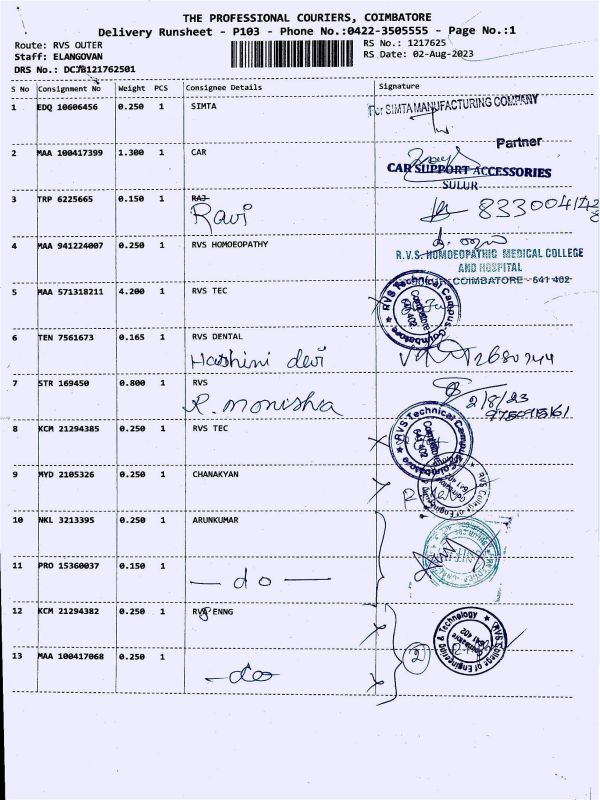 THE PROFESSIONAL COURIERS, COIMBATORE
Delivery Runsheet - P103 - Phone No.:0422-3505555 - Page No.:1
Route: RVS OUTER
RS No.: 1217625
Staff: ELANGOVAN
RS Date: 02-Aug-2023
DRS No.: DCJB121762501
S No Consignment No Weight PCS Consignee Details Signature
1 EDQ 10606456 0.250 1 SIMTA
For SIMTA MANUFACTURING COMPANY
Partner
2 MAA 100417399 1.300 1 CAR
CAR SUPPORT ACCESSORIES
SULUR
3 TRP 6225665 0.150 1 RAJ
Ravi
4 MAA 941224007 0.250 1 RVS HOMOEOPATHY
R.V.S. HOMOEOPATHIC MEDICAL COLLEGE
AND HOSPITAL
COIMBATORE - 641 402
5 MAA 571318211 4.200 1 RVS TEC
RVS Technical Campus-Coimbatore
Coimbatore
641 402
6 TEN 7561673 0.165 1 RVS DENTAL
Harshini devi
7 STR 169450 0.800 1 RVS
R. Monisha
2/8/23
8 KCM 21294385 0.250 1 RVS TEC
RVS Technical Campus-Coimbatore
Coimbatore
641 402
9 MYD 2105326 0.250 1 CHANAKYAN
RVS College of Engineering
10 NKL 3213395 0.250 1 ARUNKUMAR
11 PRO 15360037 0.150 1
— do —
12 KCM 21294382 0.250 1 RVS ENNG
RVS College of Engineering & Technology
Coimbatore
641 402
2
13 MAA 100417068 0.250 1
— do